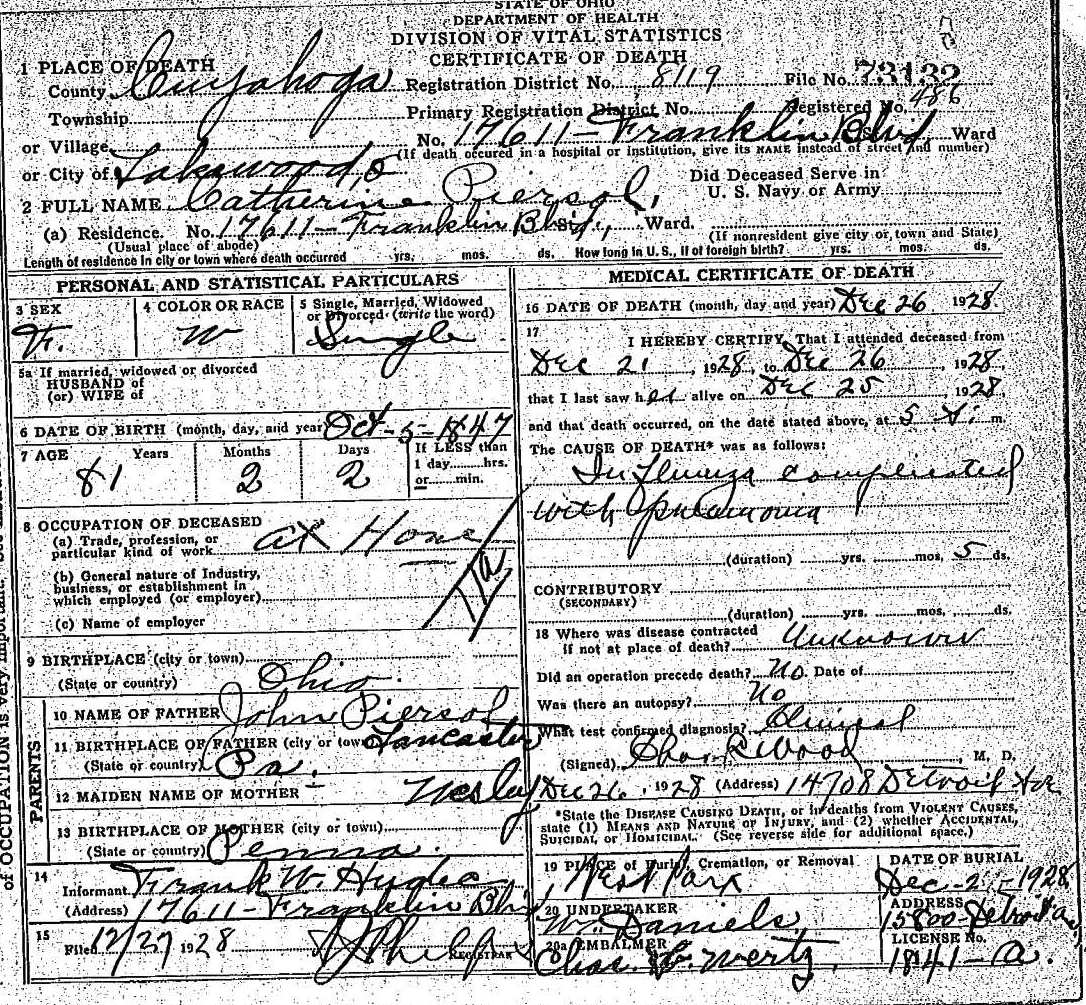 STATE OF OHIO
DEPARTMENT OF HEALTH
DIVISION OF VITAL STATISTICS
CERTIFICATE OF DEATH
1 PLACE OF DEATH
County Cuyahoga Registration District No. 8119 File No. 73132
Township Primary Registration District No. Registered No. 486
or Village No. 17611 - Franklin Blvd St., Ward
(If death occured in a hospital or institution, give its NAME instead of street and number)
or City of Lakewood, O Did Deceased Serve in
U. S. Navy or Army
2 FULL NAME Catherine Piersol,
(a) Residence. No. 17611 - Franklin Blvd St., Ward.
(Usual place of abode) (If nonresident give city or town and State)
Length of residence in city or town where death occurred yrs. mos. ds. How long in U. S., if of foreign birth? yrs. mos. ds.
PERSONAL AND STATISTICAL PARTICULARS
3 SEX 4 COLOR OR RACE 5 Single, Married, Widowed
or Divorced (write the word)
F. W Single
5a If married, widowed or divorced
HUSBAND of
(or) WIFE of
6 DATE OF BIRTH (month, day, and year Oct - 5 - 1847
7 AGE Years Months Days If LESS than
1 day hrs.
or min.
81 2 2
8 OCCUPATION OF DECEASED
(a) Trade, profession, or
particular kind of work at Home
(b) General nature of Industry,
business, or establishment in
which employed (or employer)
(c) Name of employer
9 BIRTHPLACE (city or town)
(State or country) Ohio.
PARENTS
10 NAME OF FATHER John Piersol
11 BIRTHPLACE OF FATHER (city or town Lancaster
(State or country) Pa.
12 MAIDEN NAME OF MOTHER
13 BIRTHPLACE OF MOTHER (city or town)
(State or country) Penna.
14
Informant Frank W. Hughes
(Address) 17611 - Franklin Blvd
15
Filed 12/27 1928 REGISTRAR
MEDICAL CERTIFICATE OF DEATH
16 DATE OF DEATH (month, day and year) Dec 26 1928.
17
I HEREBY CERTIFY, That I attended deceased from
Dec 21, 1928, to Dec 26, 1928,
that I last saw her alive on Dec 25, 1928,
and that death occurred, on the date stated above, at 5 A. m.
The CAUSE OF DEATH* was as follows:
Influenza complicated
with pneumonia
(duration) yrs. mos. 5 ds.
CONTRIBUTORY
(SECONDARY)
(duration) yrs. mos. ds.
18 Where was disease contracted
if not at place of death? Unknown
Did an operation precede death? No. Date of
Was there an autopsy? No
What test confirmed diagnosis? Clinical
(Signed) Wood, M. D.
Dec 26, 1928 (Address) 14708 Detroit Ave
*State the DISEASE CAUSING DEATH, or in deaths from VIOLENT CAUSES,
state (1) MEANS AND NATURE OF INJURY, and (2) whether ACCIDENTAL,
SUICIDAL, or HOMICIDAL. (See reverse side for additional space.)
19 PLACE of Burial, Cremation, or Removal DATE OF BURIAL
West Park Dec - 1928
20 UNDERTAKER ADDRESS
Daniels 15800 - Detroit
20a EMBALMER LICENSE No.
Chas. Wertz. 1841 - A.
of OCCUPATION is very important.